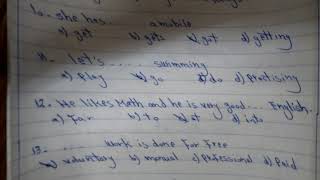 10. she has..... a mobile
a) get b) gets c) got d) getting
11. Let's ...... swimming
a) play b) go c) do d) practising
12. He likes Math and he is very good.... English.
a) Fair b) to c) at d) into
13. ..... work is done For Free
a) voluntary b) manual c) professional d) Paid